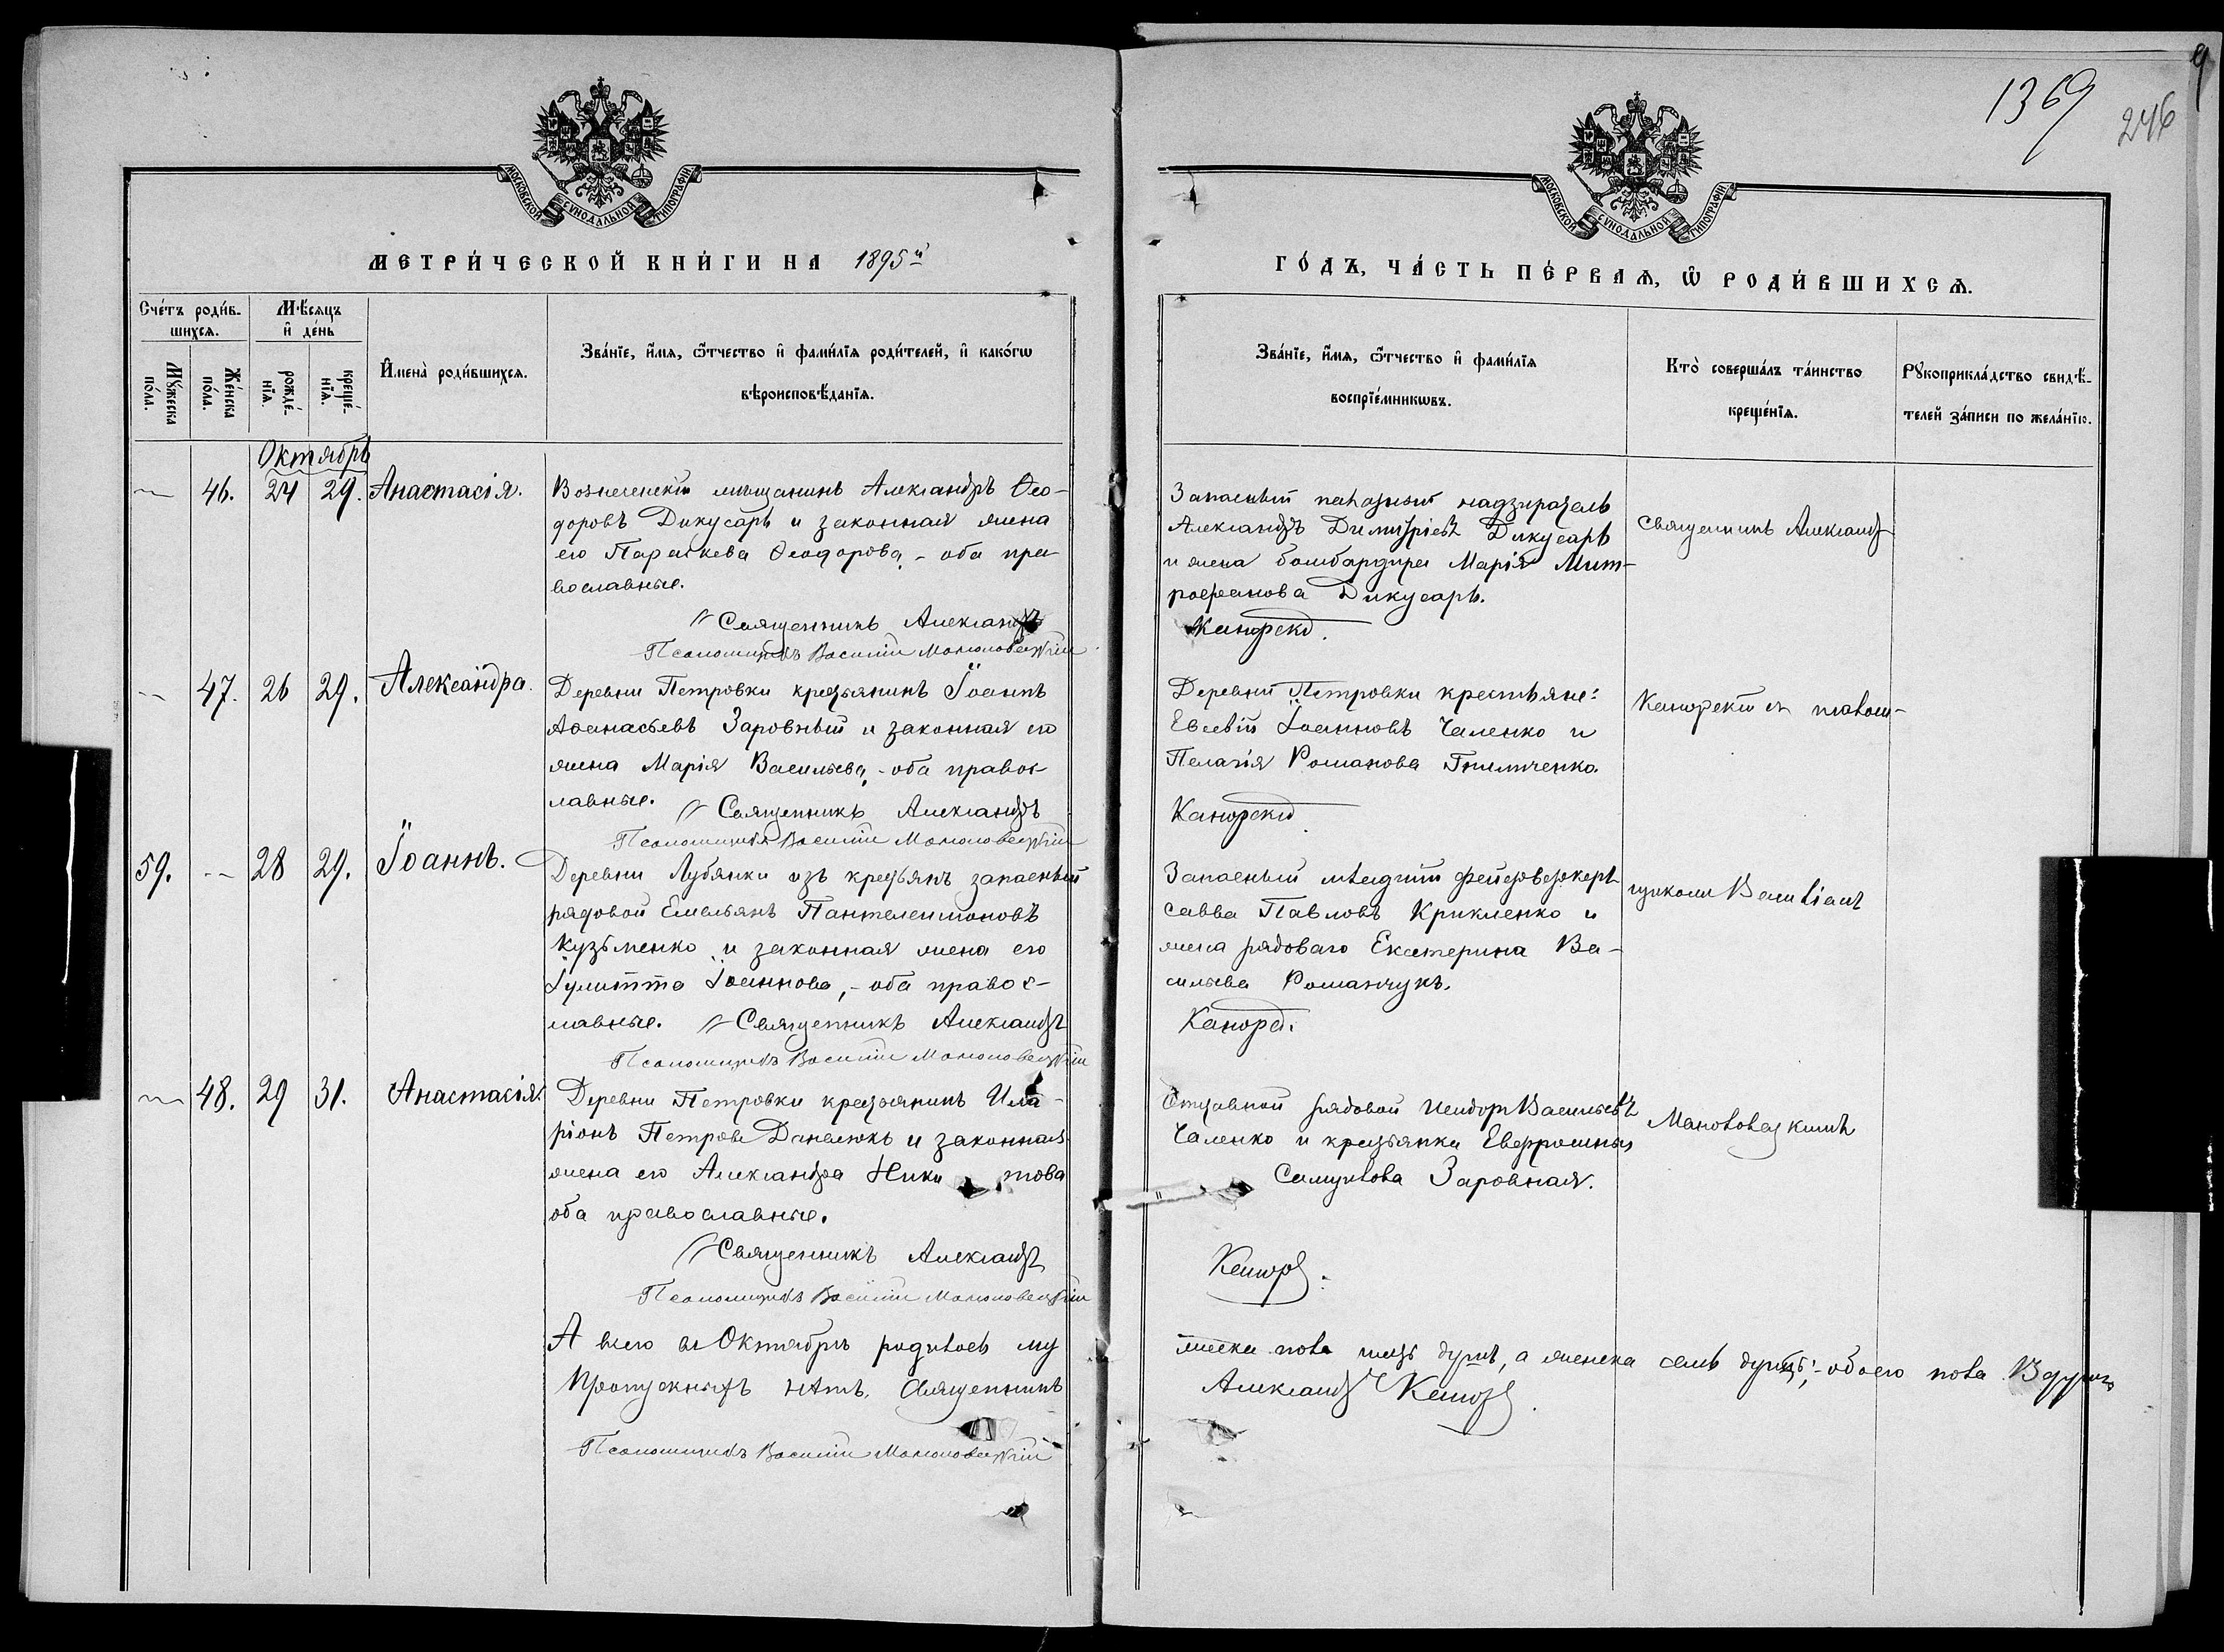 1369
246
9
МОСКОВСКОЙ СѴНОДАЛЬНОЙ ТИПОГРАФІИ
МОСКОВСКОЙ СѴНОДАЛЬНОЙ ТИПОГРАФІИ
МЕТРИ́ЧЕСКОЙ КНИ́ГИ НА 1895й
ГО́ДЪ, ЧА́СТЬ ПЕ́РВАЯ, Ѡ РОДИ́ВШИХСЯ.
Сче́тъ роди́в-
шихся.
Мꙋжеска по́ла.
Же́нска по́ла.
Мѣ́сяцъ
и҆ де́нь
рожде́-
нїя.
креще́-
нїя.
И҆мена̀ роди́вшихся.
Зва́нїе, и҆́мя, ѻ҆́тчество и҆ фами́лїя роди́телей, и҆ како́гѡ
вѣроисповѣ́данїя.
Зва́нїе, и҆́мя, ѻ҆́тчество и҆ фами́лїя
воспрїе́мникѡвъ.
Кто̀ соверша́лъ та́инство
креще́нїя.
Рꙋкоприкла́дство свидѣ́-
телей за́писи по жела́нїю.
Октябрь
— 46. 24 29. Анастасія.
Вознесенскій мѣщанинъ Александръ Ѳео-
доровъ Дикусаръ и законная жена
его Параскева Ѳеодорова, - оба пра-
вославные.
Священникъ Александръ
Псаломщикъ Василій
Запасный надзиратель
Александръ Димитріевъ Дикусаръ
и жена бомбардира Марія Мит-
рофанова Дикусаръ.
Священникъ Александръ
-- 47. 26 29. Александра.
Деревни Петровки крестьянинъ Іоаннъ
Аѳанасьевъ Заровный и законная его
жена Марія Васильева, - оба правос-
лавные.
Священникъ Александръ
Псаломщикъ Василій
Деревни Петровки крестьяне:
Евсевій Іоанновъ Чаленко и
Пелагія Романова
съ псалом-
59. -- 28 29. Іоаннъ.
Деревни Лубянки изъ крестьянъ запасный
рядовой Емельянъ Пантелеимоновъ
Кузьменко и законная жена его
Іулитта Іоаннова, - оба правос-
лавные. Священникъ Александръ
Псаломщикъ Василій
Запасный младшій фейерверкеръ
Савва Павловъ Крикленко и
жена рядоваго Екатерина Ва-
сильева Романчукъ.
щикомъ Василіемъ
— 48. 29 31. Анастасія.
Деревни Петровки крестьянинъ Ила-
ріонъ Петровъ Данилюкъ и законная
жена его Александра Ники това
оба православные.
Священникъ Александръ
Псаломщикъ Василій
Отставной рядовой Исидоръ Васильевъ
Чаленко и крестьянка Евфросинія
Самуилова Заровная.
А всего въ Октябрѣ родилось му
жеска пола шесть душъ, а женска семь душъ; - обоего пола 13 душъ
Пропускныхъ нѣтъ. Священникъ
Александръ
Псаломщикъ Василій